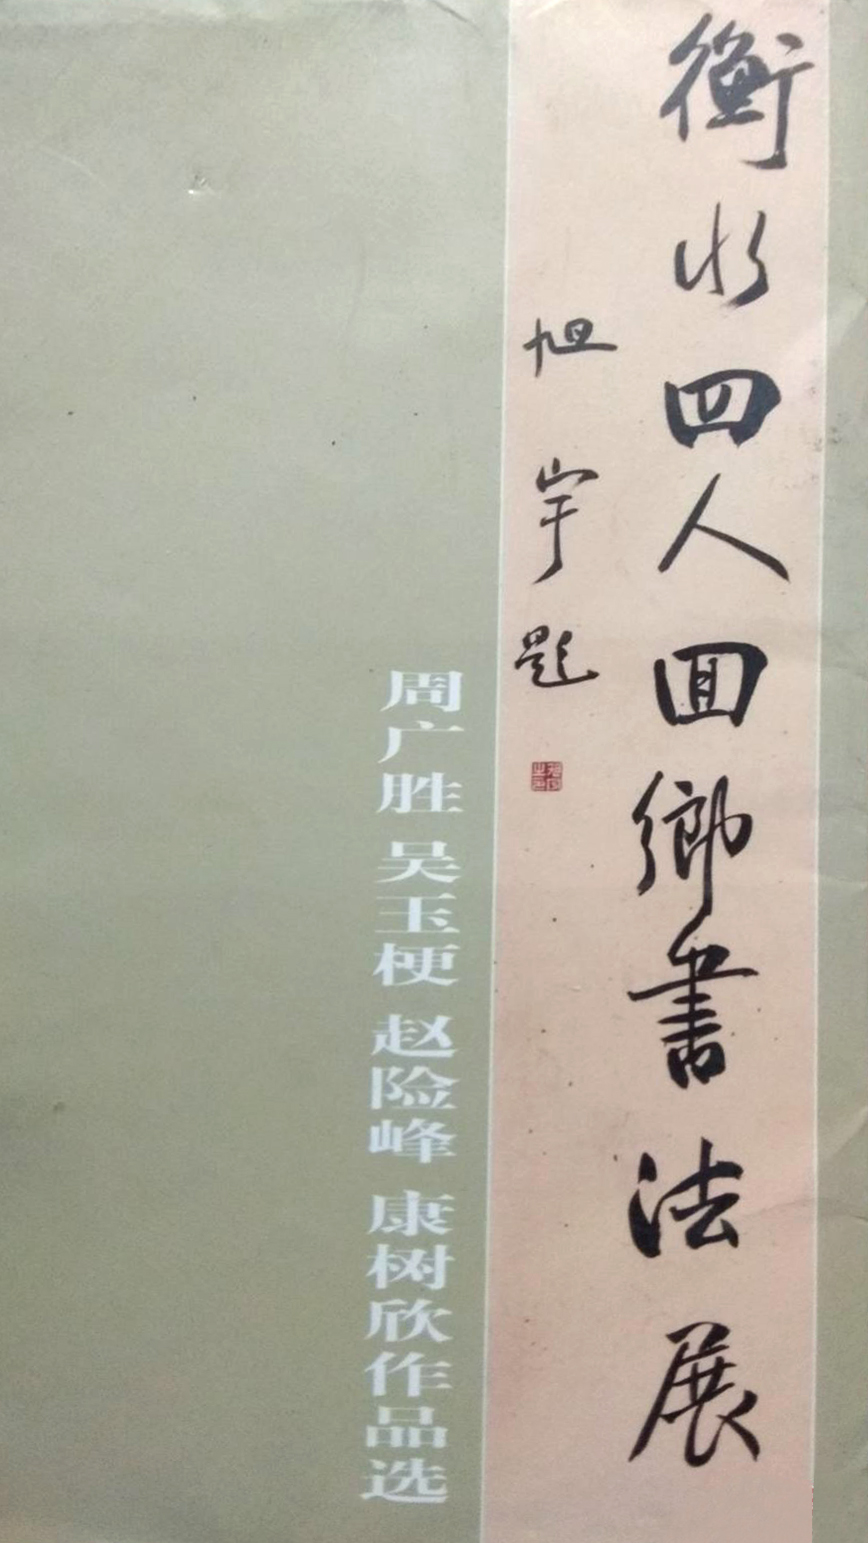 衡水四人回鄉書法展
旭宇題
周广胜 吴玉梗 赵险峰 康树欣作品选